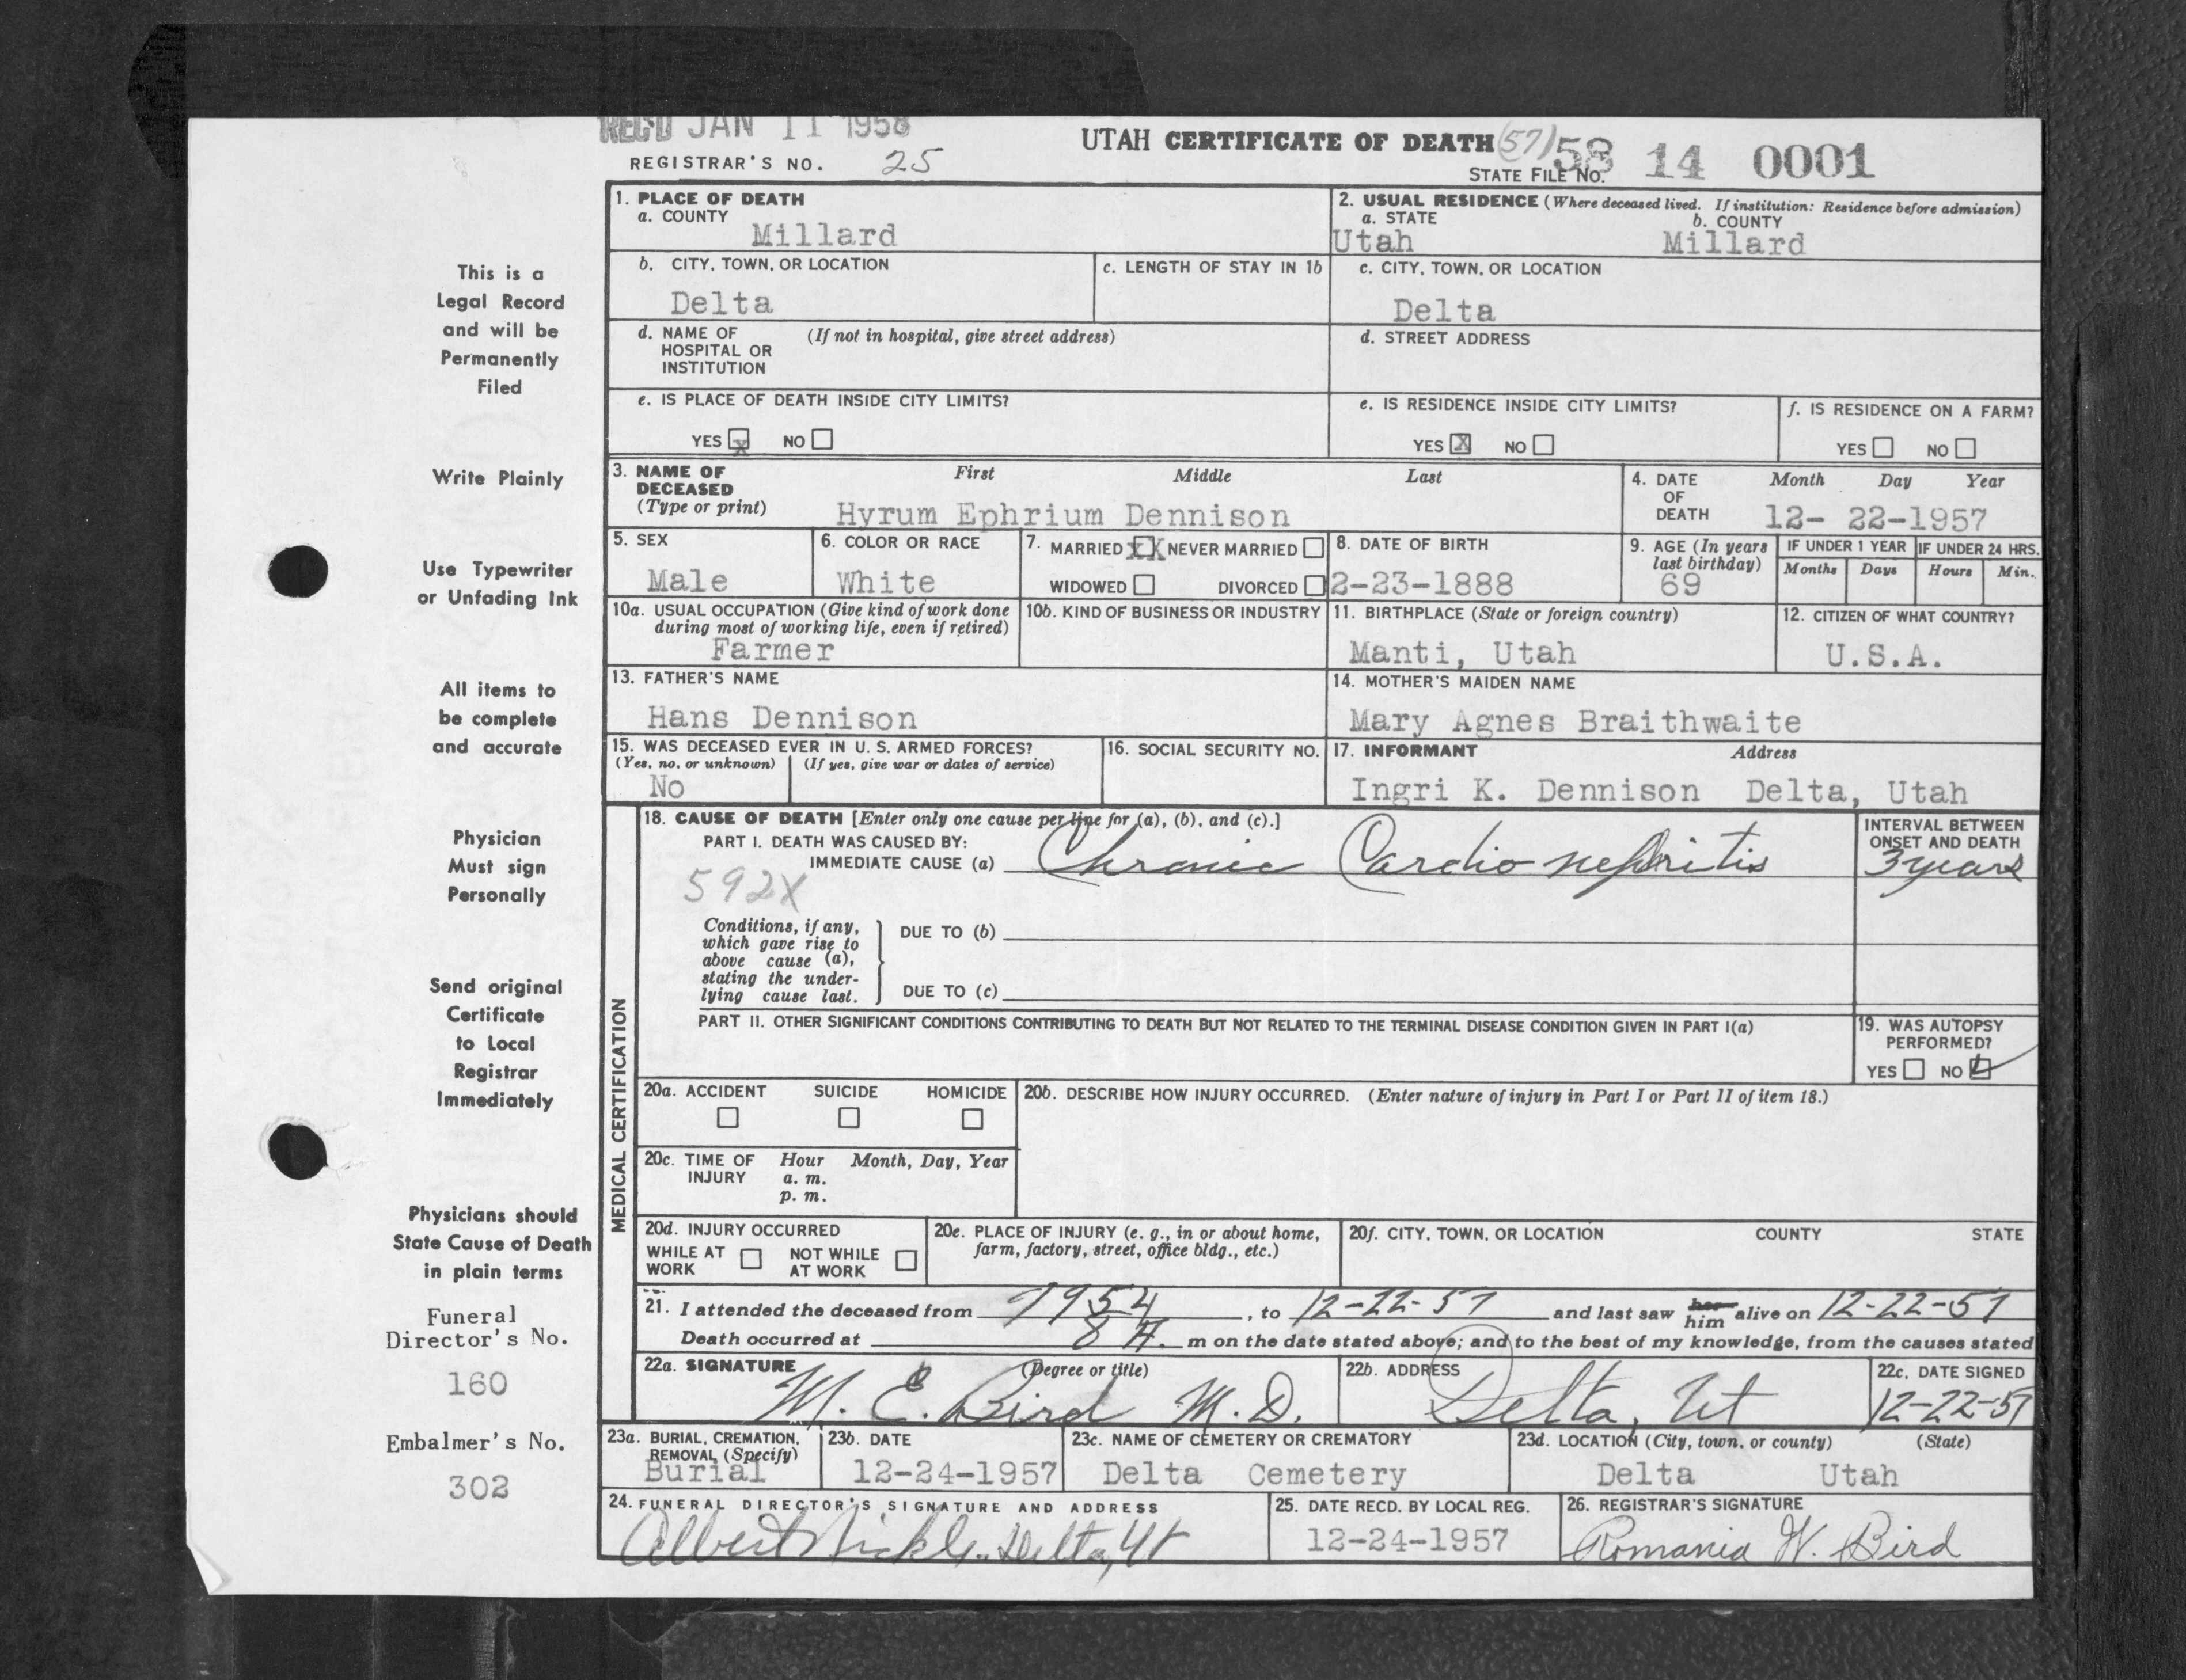 REC'D JAN 11 1958
UTAH CERTIFICATE OF DEATH (57) 58 14 0001
REGISTRAR'S NO. 25
STATE FILE NO.
1. PLACE OF DEATH
a. COUNTY
Millard
2. USUAL RESIDENCE (Where deceased lived. If institution: Residence before admission)
a. STATE b. COUNTY
Utah Millard
b. CITY, TOWN, OR LOCATION
Delta
c. LENGTH OF STAY IN 1b
c. CITY, TOWN, OR LOCATION
Delta
d. NAME OF (If not in hospital, give street address)
HOSPITAL OR
INSTITUTION
d. STREET ADDRESS
e. IS PLACE OF DEATH INSIDE CITY LIMITS?
YES x NO
e. IS RESIDENCE INSIDE CITY LIMITS?
YES X NO
f. IS RESIDENCE ON A FARM?
YES NO
3. NAME OF First Middle Last
DECEASED
(Type or print) Hyrum Ephrium Dennison
4. DATE Month Day Year
OF
DEATH 12- 22-1957
5. SEX
Male
6. COLOR OR RACE
White
7. MARRIED XX NEVER MARRIED
WIDOWED DIVORCED
8. DATE OF BIRTH
2-23-1888
9. AGE (In years
last birthday)
69
IF UNDER 1 YEAR IF UNDER 24 HRS.
Months Days Hours Min.
10a. USUAL OCCUPATION (Give kind of work done
during most of working life, even if retired)
Farmer
10b. KIND OF BUSINESS OR INDUSTRY
11. BIRTHPLACE (State or foreign country)
Manti, Utah
12. CITIZEN OF WHAT COUNTRY?
U.S.A.
13. FATHER'S NAME
Hans Dennison
14. MOTHER'S MAIDEN NAME
Mary Agnes Braithwaite
15. WAS DECEASED EVER IN U. S. ARMED FORCES?
(Yes, no, or unknown) (If yes, give war or dates of service)
No
16. SOCIAL SECURITY NO.
17. INFORMANT Address
Ingri K. Dennison Delta, Utah
MEDICAL CERTIFICATION
18. CAUSE OF DEATH [Enter only one cause per line for (a), (b), and (c).]
PART I. DEATH WAS CAUSED BY:
IMMEDIATE CAUSE (a) Chronic Cardio-nephritis
592X
INTERVAL BETWEEN
ONSET AND DEATH
3 years
Conditions, if any,
which gave rise to
above cause (a),
stating the under-
lying cause last.
DUE TO (b)
DUE TO (c)
PART II. OTHER SIGNIFICANT CONDITIONS CONTRIBUTING TO DEATH BUT NOT RELATED TO THE TERMINAL DISEASE CONDITION GIVEN IN PART I(a)
19. WAS AUTOPSY
PERFORMED?
YES NO
20a. ACCIDENT SUICIDE HOMICIDE
20b. DESCRIBE HOW INJURY OCCURRED. (Enter nature of injury in Part I or Part II of item 18.)
20c. TIME OF Hour Month, Day, Year
INJURY a. m.
p. m.
20d. INJURY OCCURRED
WHILE AT NOT WHILE
WORK AT WORK
20e. PLACE OF INJURY (e. g., in or about home,
farm, factory, street, office bldg., etc.)
20f. CITY, TOWN, OR LOCATION COUNTY STATE
21. I attended the deceased from 1954, to 12-22-57 and last saw her him alive on 12-22-57
Death occurred at 8 A. m on the date stated above; and to the best of my knowledge, from the causes stated
22a. SIGNATURE (Degree or title)
M. E. Bird M. D.
22b. ADDRESS
Delta, Ut
22c. DATE SIGNED
12-22-57
23a. BURIAL, CREMATION,
REMOVAL (Specify)
Burial
23b. DATE
12-24-1957
23c. NAME OF CEMETERY OR CREMATORY
Delta Cemetery
23d. LOCATION (City, town, or county) (State)
Delta Utah
24. FUNERAL DIRECTOR'S SIGNATURE AND ADDRESS
Albert Nickle. Delta, Ut
25. DATE RECD. BY LOCAL REG.
12-24-1957
26. REGISTRAR'S SIGNATURE
Romania W. Bird
This is a
Legal Record
and will be
Permanently
Filed
Write Plainly
Use Typewriter
or Unfading Ink
All items to
be complete
and accurate
Physician
Must sign
Personally
Send original
Certificate
to Local
Registrar
Immediately
Physicians should
State Cause of Death
in plain terms
Funeral
Director's No.
160
Embalmer's No.
302